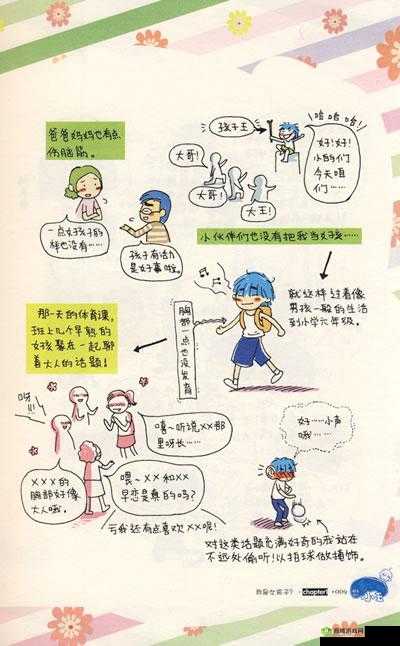 爸爸妈妈也有点
伤脑筋。
一点女孩子的
样也没有……
孩子有活力
是好事啦。
孩子王
哈哈哈!
好!好!
小的们
今天咱
们……
大哥!
大哥!
大王!
小伙伴们也没有把我当女孩……
就这样过着像
男孩一般的生活
到小学六年级。
胸部一点也没发育
那一天的体育课,
班上几个早熟的
女孩聚在一起聊
着大人的话题!
呀!!!
嘻~听说××那
里呀长……
×××的
胸部好像
大人哦。
喂~××和××
早恋是真的吗?
亏我还有点喜欢××呢!
好……小声
哦……
对这类话题充满好奇的我站在
不远处偷听!以拍球做掩饰。
我是女孩子?
chapter1
+009